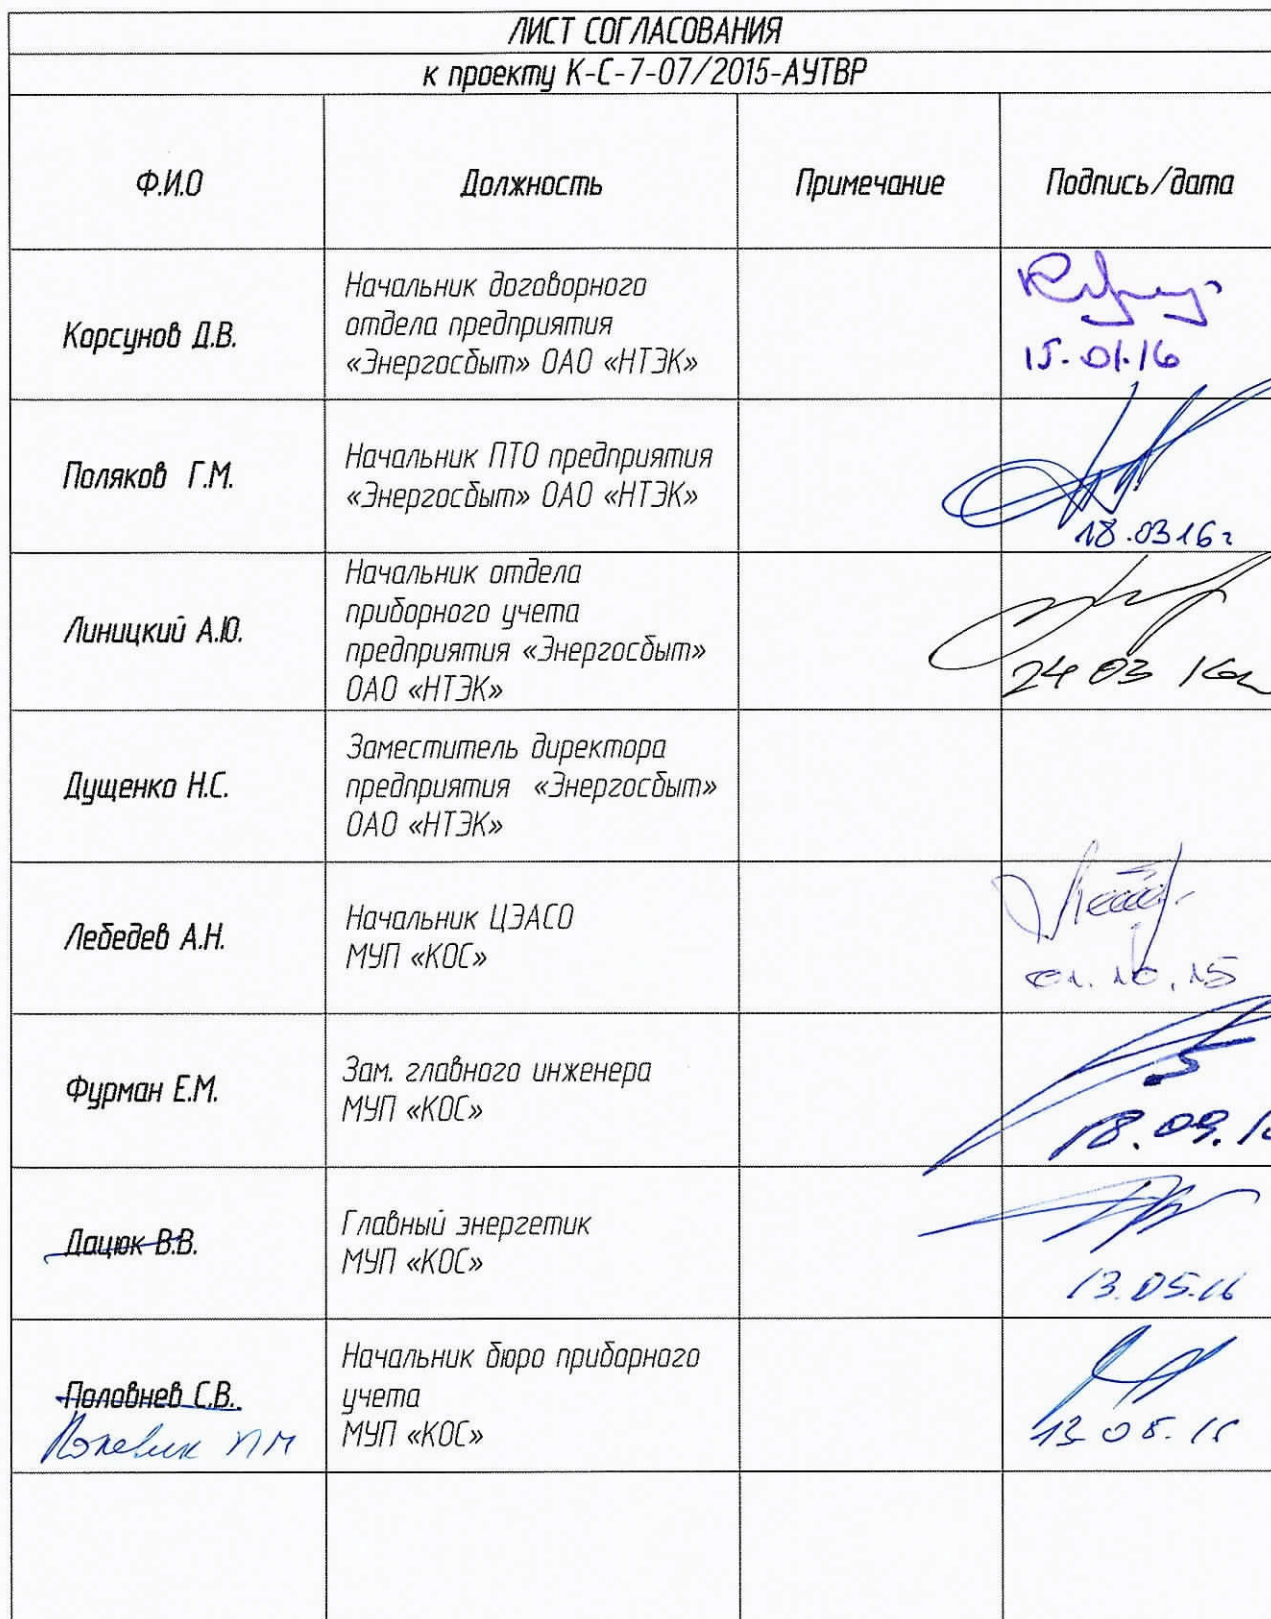 ЛИСТ СОГЛАСОВАНИЯ
к проекту К-С-7-07/2015-АУТВР
Ф.И.О
Должность
Примечание
Подпись/дата
Корсунов Д.В.
Начальник договорного
отдела предприятия
«Энергосбыт» ОАО «НТЭК»
15.01.16
Поляков Г.М.
Начальник ПТО предприятия
«Энергосбыт» ОАО «НТЭК»
18.03 16г
Линицкий А.Ю.
Начальник отдела
приборного учета
предприятия «Энергосбыт»
ОАО «НТЭК»
24 03
Дущенко Н.С.
Заместитель директора
предприятия «Энергосбыт»
ОАО «НТЭК»
Лебедев А.Н.
Начальник ЦЭАСО
МУП «КОС»
01.10.15
Фурман Е.М.
Зам. главного инженера
МУП «КОС»
18.09.
Дацюк В.В.
Главный энергетик
МУП «КОС»
13.05.16
Половнев С.В.
Начальник бюро приборного
учета
МУП «КОС»